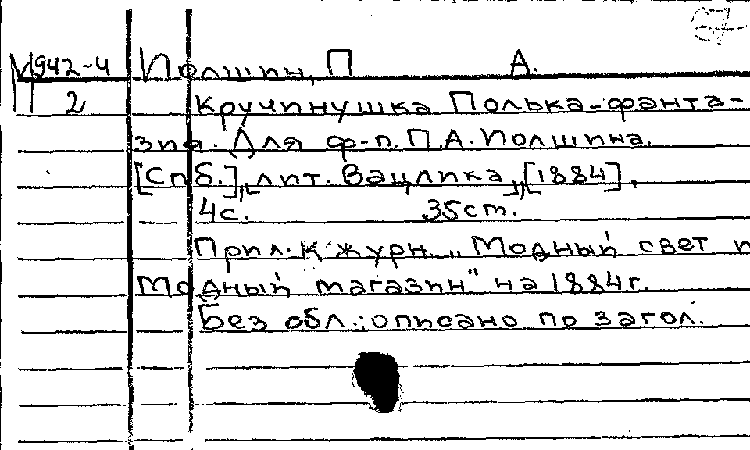 М942-4 Иолшин, П А.
2 Кручинушка Полька-фанта-
зия. Для ф-п. П.А. Иолшина.
[Спб.], лит. Вацлика, [1884],
4с. 35см.
Прил. к журн. „Модный свет и
Модный магазин" на 1884г.
Без обл.; описано по загол.